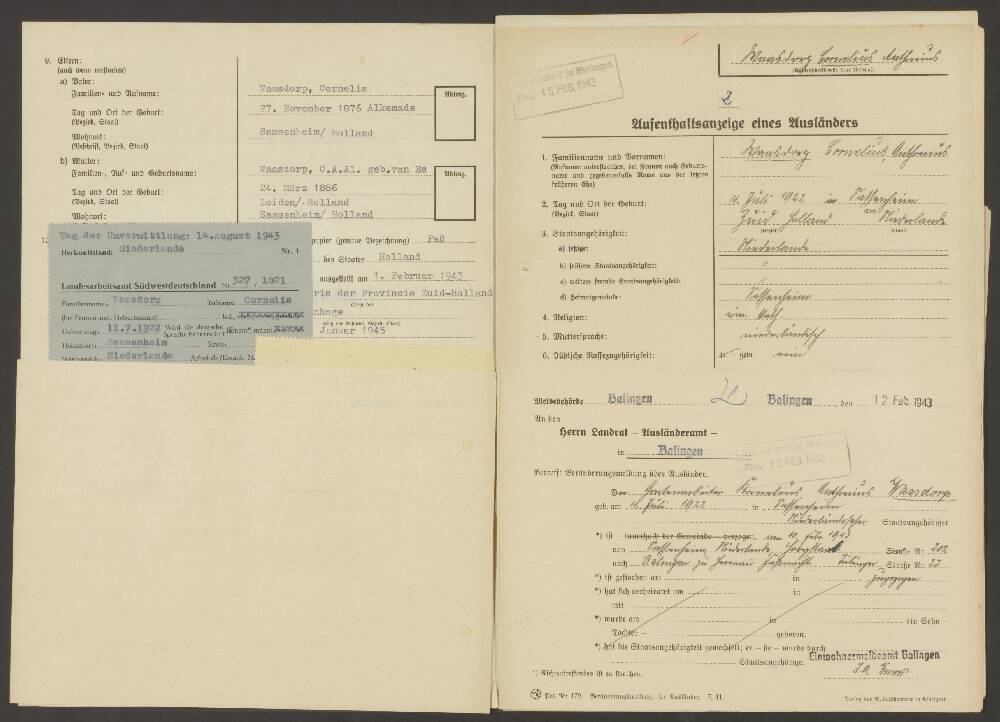 9. Eltern:
(auch wenn verstorben)
a) Vater:
Familien- und Rufname:
Waasdorp, Cornelis
Tag und Ort der Geburt:
(Bezirk, Staat)
27. November 1876 Alkemade
Wohnort:
(Anschrift, Bezirk, Staat)
Sassenheim/ Holland
Aktenz.
b) Mutter:
Familien-, Ruf- und Geburtsname:
Waasdorp, C.A.Al. geb.van Es
Tag und Ort der Geburt:
(Bezirk, Staat)
24. März 1886
Leiden/ Holland
Wohnort:
Sassenheim/ Holland
Aktenz.
papier (genaue Bezeichnung) Paß
des Staates Holland
ausgestellt am 1. Februar 1943
ris der Provincie Zuid-Holland
nhage
Januar 1945
Tag der Umvermittlung: 14.August 1943
Herkunftsland: Niederlande Nr. 1
Landesarbeitsamt Südwestdeutschland Nr. 327 / 1021
Familienname: Waasdorp Rufname Cornelis
(bei Frauen auch Geburtsname) led.,
Geburtstag: 11.7.1922 Wird die deutsche Sprache beherrscht?
Heimatort: Sassenheim Kreis:
Niederlande
Waasdorp Cornelius Anthonius
Der Landrat in Balingen
Eing. 15. FEB. 1943
2
Aufenthaltsanzeige eines Ausländers
1. Familienname und Vornamen:
(Rufname unterstreichen, bei Frauen auch Geburts-
name und gegebenenfalls Name aus der letzten
früheren Ehe)
Waasdorp Cornelius, Anthonius
2. Tag und Ort der Geburt:
(Bezirk, Staat)
11. Juli 1922 in Sassenheim
Zuid Holland Niederlande
3. Staatsangehörigkeit:
a) jetzige:
Niederlande
b) frühere Staatsangehörigkeit:
c) weitere fremde Staatsangehörigkeit:
d) Heimatgemeinde:
Sassenheim
4. Religion:
röm. kath.
5. Muttersprache:
niederländisch
6. Jüdische Rassezugehörigkeit:
ja – nein nein
Meldebehörde Balingen Balingen, den 12. Feb. 1943
An den
Herrn Landrat – Ausländeramt –
in Balingen
Eing. 15. FEB. 1943
Betreff: Veränderungsmeldung über Ausländer.
Der Gartenarbeiter Kornelius Anthonius Waasdorp
geb. am 11. Juli 1922 in Sassenheim
Niederländischer Staatsangehöriger
*) ist innerhalb der Gemeinde verzogen am 10. Febr. 1943
von Sassenheim, Niederlande, Straße Nr. 202
nach Balingen zu Herman Straße Nr. 27
*) ist gestorben am in zugezogen
*) hat sich verheiratet am in
mit
*) wurde am in ein Sohn –
Tochter – geboren.
*) hat die Staatsangehörigkeit gewechselt; er – sie – wurde durch
Staatsangehörige. Einwohnermeldeamt Balingen
*) Nichtzutreffendes ist zu streichen. J.A.
Pol. Nr. 172. Veränderungsmeldung für Ausländer. 7. 41. Verlag von W. Kohlhammer in Stuttgart